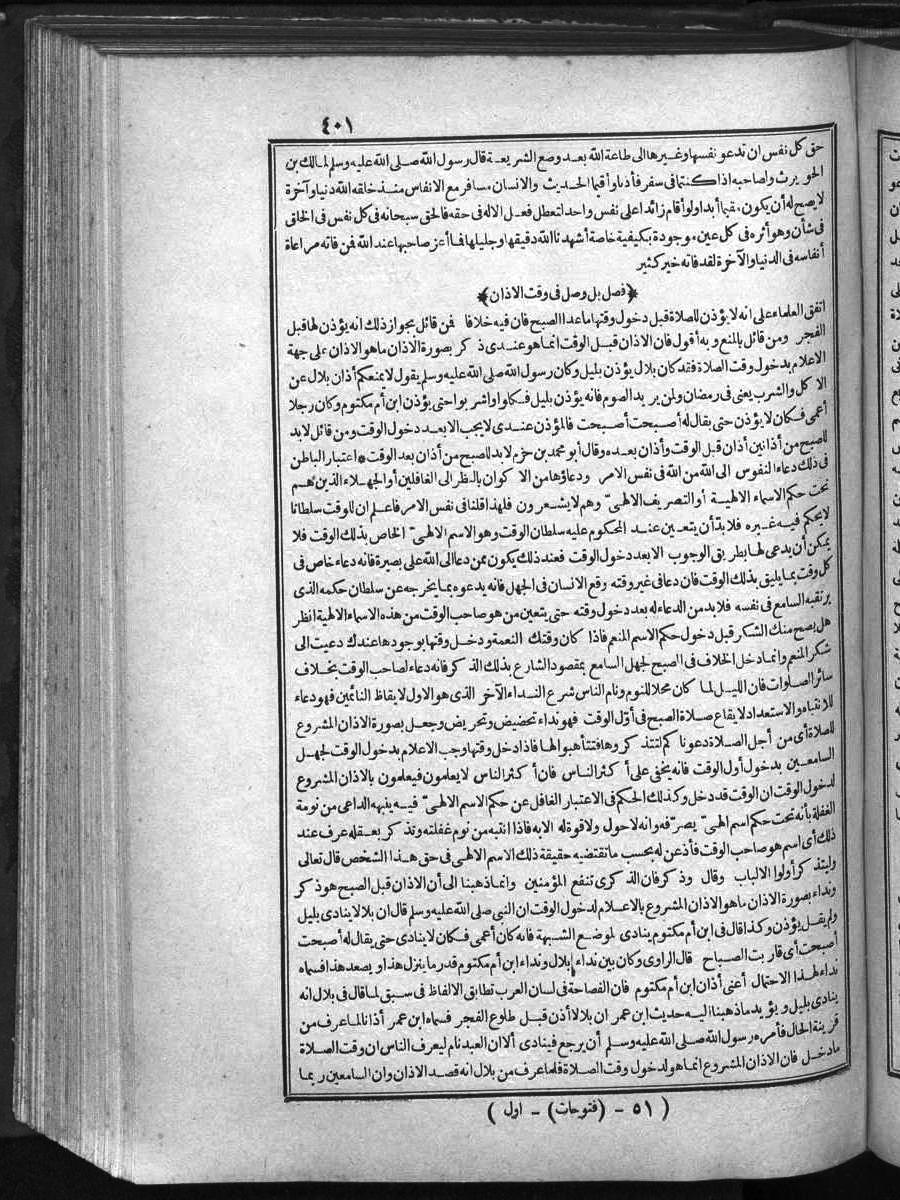 ٤٠١
حق كل نفس ان تدعو نفسها وغيرها الى طاعة الله بعد وضع الشريعة قال رسول الله صلى الله عليه وسلم لمالك بن
الحويرث ولصاحبه اذا كنتما فى سفر فأذنا وأقيما الحديث والانسان مسافر مع الانفاس منذ خلقه الله دنيا وآخرة
لا يصح له أن يكون مقيما أبدا ولو أقام زائدا على نفس واحد لتعطل فعل الاله فى حقه فالحق سبحانه فى كل نفس فى الخلق
فى شأن وهو أثره فى كل عين موجودة بكيفية خاصة أشهدنا الله دقيقها وجليلها فما أعز صاحبها عند الله فمن فاته مراعاة
أنفاسه فى الدنيا والآخرة لقد فاته خير كثير
﴿فصل بل وصل فى وقت الاذان﴾
اتفق العلماء على انه لا يؤذن للصلاة قبل دخول وقتها ماعدا الصبح فان فيه خلافا فمن قائل بجواز ذلك انه يؤذن لها قبل
الفجر ومن قائل بالمنع وبه أقول فان الاذان قبل الوقت انما هو عندى ذكر بصورة الاذان ما هو الاذان على جهة
الاعلام بدخول وقت الصلاة فقد كان بلال يؤذن بليل وكان رسول الله صلى الله عليه وسلم يقول لا يمنعكم أذان بلال عن
الاكل والشرب يعنى فى رمضان ولمن يريد الصوم فانه يؤذن بليل فكلوا واشربوا حتى يؤذن ابن أم مكتوم وكان رجلا
أعمى فكان لا يؤذن حتى يقال له أصبحت أصبحت فالمؤذن عندى لا يجب الا بعد دخول الوقت ومن قائل لابد
للصبح من أذانين أذان قبل الوقت وأذان بعده وقال أبو محمد بن حزم لابد للصبح من أذان بعد الوقت * اعتبار الباطن
فى ذلك دعاء النفوس الى الله من الله فى نفس الامر ودعاؤها من الاكوان بالنظر الى الغافلين أو الجهلاء الذين هم
تحت حكم الاسماء الالهية أو التصريف الالهىّ وهم لا يشعرون فلهذا قلنا فى نفس الامر فاعلم ان للوقت سلطانا
لا يحكم فيه غيره فلا بدّ أن يتعين عند المحكوم عليه سلطان الوقت وهو الاسم الالهىّ الخاص بذلك الوقت فلا
يمكن أن يدعى لها بطريق الوجوب الا بعد دخول الوقت فعند ذلك يكون ممن دعا الى الله على بصيرة فانه دعاء خاص فى
كل وقت بما يليق بذلك الوقت فان دعا فى غير وقته وقع الانسان فى الجهل فانه يدعوه بما يخرجه عن سلطان حكمه الذى
يرتقبه السامع فى نفسه فلابد من الدعاء له بعد دخول وقته حتى يتعين من هو صاحب الوقت من هذه الاسماء الالهية انظر
هل يصح منك الشكر قبل دخول حكم الاسم المنعم فاذا كان وقتك النعمة ودخل وقتها بوجودها عندك دعيت الى
شكر المنعم وانما دخل الخلاف فى الصبح لجهل السامع بمقصود الشارع بذلك الذكر فانه دعاء لصاحب الوقت بخلاف
سائر الصلوات فان الليل لما كان محلا للنوم ونام الناس شرع النداء الآخر الذى هو الاول لايقاظ النائمين فهو دعاء
للانتباه والاستعداد لايقاع صلاة الصبح فى أوّل الوقت فهو نداء تحضيض وتحريض وجعل بصورة الاذان المشروع
للصلاة أى من أجل الصلاة دعوناكم لتتذكروها فتتأهبوا لها فاذا دخل وقتها وجب الاعلام بدخول الوقت لجهل
السامعين بدخول أول الوقت فانه يخفى على أكثر الناس فان أكثر الناس لا يعلمون فيعلمون بالاذان المشروع
لدخول الوقت ان الوقت قد دخل وكذلك الحكم فى الاعتبار الغافل عن حكم الاسم الالهىّ فيه ينبهه الداعى من نومة
الغفلة بأنه تحت حكم اسم الهىّ يصرّفه وانه لا حول ولا قوة له الا به فاذا انتبه من نوم غفلته وتذكر بعقله عرف عند
ذلك أى اسم هو صاحب الوقت فأذعن له بحسب ما تقتضيه حقيقة ذلك الاسم الالهى فى حق هذا الشخص قال تعالى
وليتذكر أولوا الالباب وقال وذكر فان الذكرى تنفع المؤمنين وانما ذهبنا الى أن الاذان قبل الصبح هو ذكر
ونداء بصورة الاذان ما هو الاذان المشروع بالاعلام لدخول الوقت ان النبى صلى الله عليه وسلم قال ان بلالا ينادى بليل
ولم يقل يؤذن وكذا قال فى ابن أم مكتوم ينادى لموضع الشبهة فانه كان أعمى فكان لا ينادى حتى يقال له أصبحت
أصبحت أى قاربت الصباح قال الراوى وكان بين نداء بلال ونداء ابن أم مكتوم قدر ما ينزل هذا ويصعد هذا فسماه
نداء لهذا الاحتمال أعنى أذان ابن أم مكتوم فان الفصاحة فى لسان العرب تطابق الالفاظ فى سبق لما قال فى بلال انه
ينادى بليل ويؤيد ما ذهبنا اليه حديث ابن عمر ان بلالا أذن قبل طلوع الفجر فسماه ابن عمر أذانا لما عرف من
قرينة الحال فأمره رسول الله صلى الله عليه وسلم أن يرجع فينادى ألا ان العبد نام ليعرف الناس ان وقت الصلاة
ما دخل فان الاذان المشروع انما هو لدخول وقت الصلاة فلما عرف من بلال انه قصد الاذان وان السامعين ربما
( ٥١ - (فتوحات) - اول )